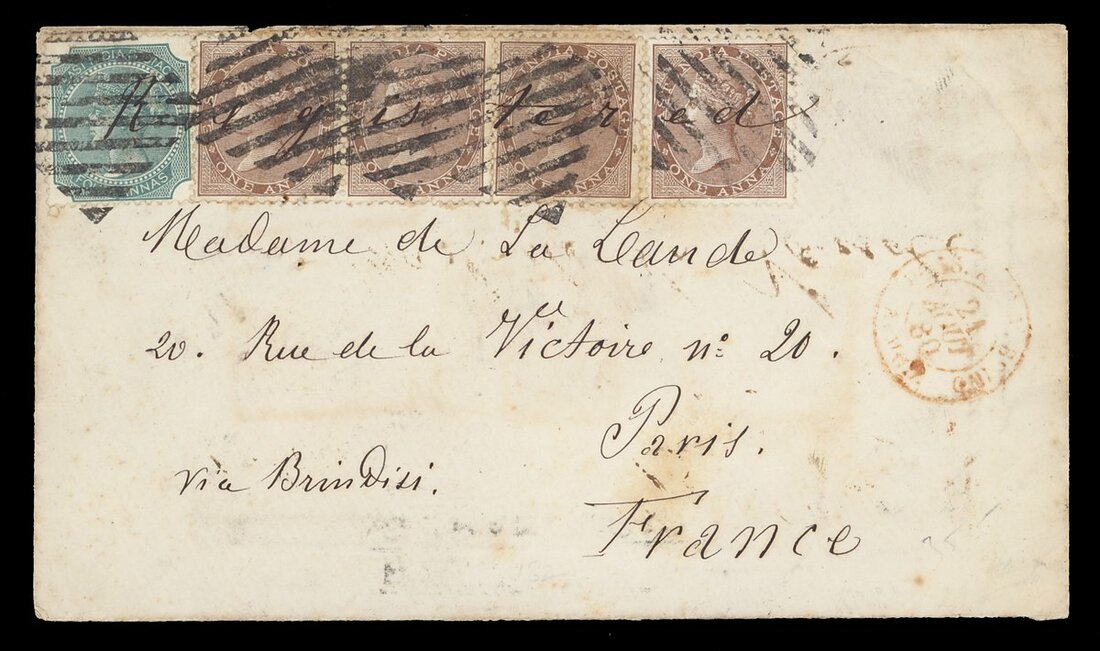 EAST INDIA POSTAGE
FOUR ANNAS
INDIA POSTAGE
ONE ANNA
INDIA POSTAGE
ONE ANNA
INDIA POSTAGE
ONE ANNA
INDIA POSTAGE
ONE ANNA
Registered
Madame de La Lande
20. Rue de la Victoire nº 20.
Paris.
France
via Brindisi.
2
AOUT
80
35